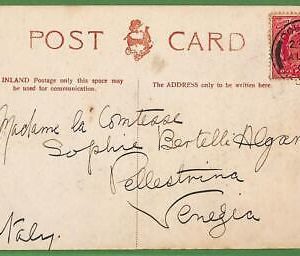 POST CARD
INLAND Postage only this space may
be used for communication.
The ADDRESS only to be written here.
Madame la Comtesse
Sophie Bertelli Algar
Pellestrina
Venezia
Italy